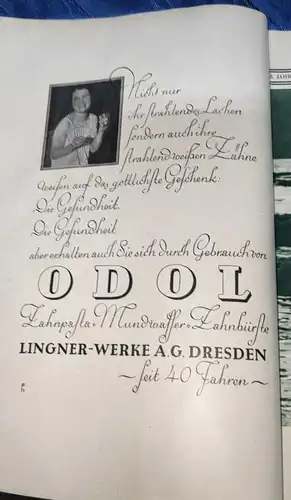 Nicht nur
ihr strahlendes Lachen
sondern auch ihre
strahlend weißen Zähne
weisen auf das göttlichste Geschenk:
Die Gesundheit.
Die Gesundheit
aber erhalten auch Sie sich durch Gebrauch von
ODOL
Zahnpasta · Mundwasser · Zahnbürste
LINGNER-WERKE A.G. DRESDEN
~ seit 40 Jahren ~
JAHR